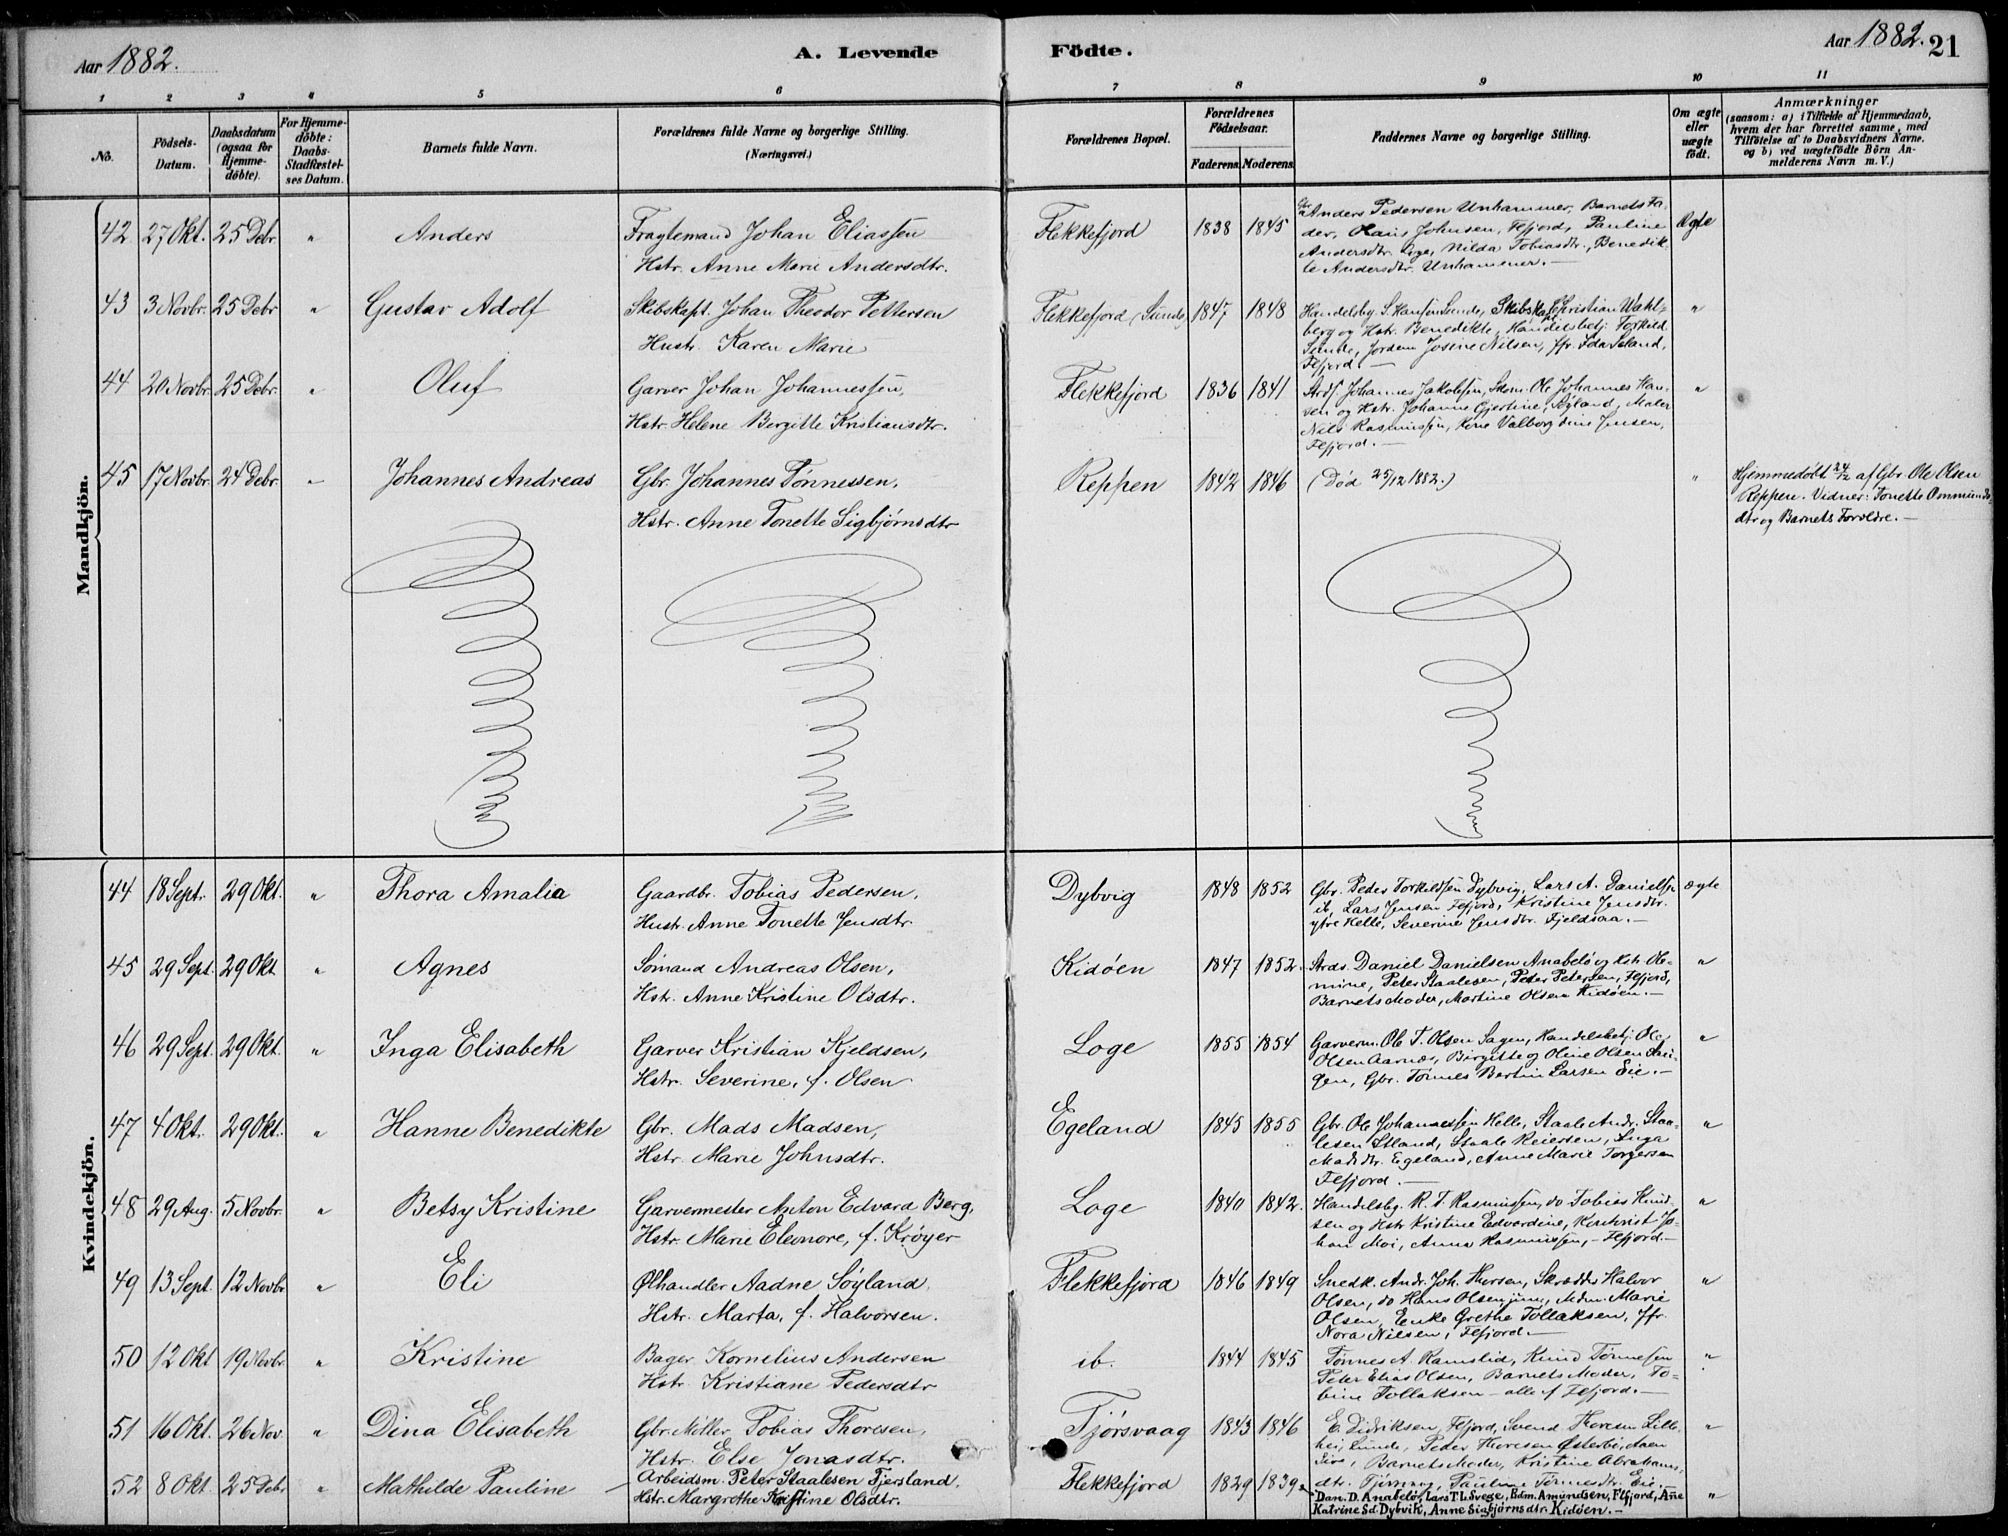 Aar 1882.
A. Levende Födte.
Aar 1882. 21
1 2 3 4 5 6 7 8 9 10 11
No.
Födsels-Datum.
Daabsdatum (ogsaa for Hjemme-döbte).
For Hjemme-döbte: Daabs-Stadfæstel-ses Datum.
Barnets fulde Navn.
Forældrenes fulde Navne og borgerlige Stilling.
(Næringsvei.)
Forældrenes Bopæl.
Forældrenes Födselsaar.
Faderens. Moderens.
Faddernes Navne og borgerlige Stilling.
Om ægte eller uægte födt.
Anmærkninger
(saasom: a) i Tilfælde af Hjemmedaab,
hvem der har forrettet samme, med
Tilföielse af to Daabsvidners Navne,
og b) ved uægtefödte Börn An-
melderens Navn m. V.)
Mandkjön.
42 27 Okt. 25 Debr. " Anders
Fragtemand Johan Eliassen
Hstr. Anne Marie Andersdtr.
Flekkefjord 1838 1845
Gbr. Anders Pedersen Unhammer, Barnets Fa-
der, Olaus Johnsen, Flfjord, Pauline
Andersdtr. Loge, Nilda Tobiasdtr., Benedik-
te Andersdtr. Unhammer.—
Ægte
43 3 Novbr. 25 Debr " Gustav Adolf
Skibskapt. Johan Theodor Pettersen
Hustr. Karen Marie
Flekkefjord (Sunde) 1847 1848
Handelsbg S. Hansen Sunde, Skibskapt. Christian Wahl-
berg og Hstr. Benedikte, Handelsbetj. Torkild
Sunde, Jordem. Josine Nilsen, Jfr. Ida Seland,
Flfjord.—
"
44 20 Novbr. 25 Debr. " Oluf
Garver Johan Johannessen,
Hstr. Helene Birgitte Kristiansdtr.
Flekkefjord 1836 1841
Strds. Johannes Jakobsen, Skom. Ole Johannes Han-
sen og Hstr. Johanne Gjertine, Söyland, Maler
Nils Rasmussen, Kone Valborg Sine Jensen,
Flfjord.—
"
45 17 Novbr. 24 Debr. " Johannes Andreas
Gbr. Johannes Tönnessen,
Hstr. Anne Tonette Sigbjørnsdtr
Reppen 1842 1846
(Död 25/12 1882.)
"
Hjemmedöbt 24/12 af Gbr. Ole Olsen
Reppen. Vidner: Tonette Ommunds-
dtr og Barnets Forældre.—
Kvindekjön.
44 18 Sept. 29 Okt. " Thora Amalia
Gaardbr. Tobias Pedersen,
Hustr. Anne Tonette Jensdtr
Dybvig 1848 1852
Gbr. Peder Torkildsen Dybvig, Lars A. Danielsen
ib, Lars Jensen Flfjord, Kristine Jensdtr.
ytre Helle, Severine Jensdtr. Fjeldsaa.—
ægte
45 29 Sept. 29 Okt " Agnes
Sömand Andreas Olsen,
Hstr. Anne Kristine Olsdtr.
Kidöen 1847 1852.
Strds. Daniel Danielsen Anabelö og Hstr. Ole-
mine, Peter Staalesen, Peter Petersen, Flfjord,
Barnets Moder, Martine Olsen Kidöen.—
"
46 29 Sept. 29 Okt. " Inga Elisabeth
Garver Kristian Kjeldsen,
Hstr. Severine, f. Olsen
Loge 1855 1854
Garverm. Ole T. Olsen Sagen, Handelsbetj. Ole
Olsen Aarnæs, Birgitte og Oline Olsen
gen, Gbr. Tönnes Bertin Larsen Eie.—
"
47 4 Okt. 29 Okt. " Hanne Benedikte
Gbr. Mads Madsen,
Hstr. Marie Johnsdtr.
Egeland 1845 1855
Gbr. Ole Johannessen Helle, Staale Andr. Staa-
lesen Stland, Staale Reiersen, Inga
Madsdtr. Egeland, Anne Marie Torgersen
Flfjord.—
"
48 29 Aug. 5 Novbr. " Betsy Kristine
Garvermester Anton Edvard Berg,
Hstr. Marie Eleonore, f. Kröyer
Loge 1840 1842.
Handelsbg. R. T. Rasmussen, do Tobias Knud-
sen og Hstr Kristine Edvardine, Kontorist Jo-
han Moi, Anna Rasmussen,— Flfjord.—
"
49 13 Sept. 12 Novbr " Eli
Ølhandler Aadne Söyland,
Hstr. Marta, f. Halvorsen.
Flekkefjord 1846 1849
Snedk. Andr. Joh. Thorsen, Skrædder Halvor
Olsen, do Hans Olsen jun., Mdm. Marie
Olsen, Enke Grethe Tollaksen, Jfr.
Nora Nilsen, Flfjord.—
"
50 12 Okt 19 Novbr. " Kristine
Bager Kornelius Andersen
Hstr. Kristiane Pedersdtr
ib. 1844 1845
Tønnes A. Ramslid, Knud Tönnesen
Peter Elias Olsen, Barnets Moder, To-
bine Tollaksen — alle af Flfjord.—
"
51 16 Okt. 26 Nov. " Dina Elisabeth
Gbr. Möller Tobias Thoresen,
Hstr. Else Jonasdtr.
Tjörsvaag 1843 1846
E. Didriksen Flfjord, Svend Thoresen Lille-
hei, Lunde, Peder Thoresen Østerbö, Aaen
Sire, Barnets Moder, Kristine Abrahams-
dtr. Tjörsvag, Pauline Tönnesdtr. Eie.—
"
52 8 Okt. 25 Debr " Mathilde Pauline —
Arbeidsm. Peter Staalesen Tjersland,
Hstr. Margrethe Kristine Olsdtr.
Flekkefjord 1829 1839
Dan. D. Anabelö, Lars T. L. Svege, Bdm. Amundsen, Flfjord, Ane
Katrine Sd. Dybvik, Anne Sigbjørnsdtr. Kidöen.—
"